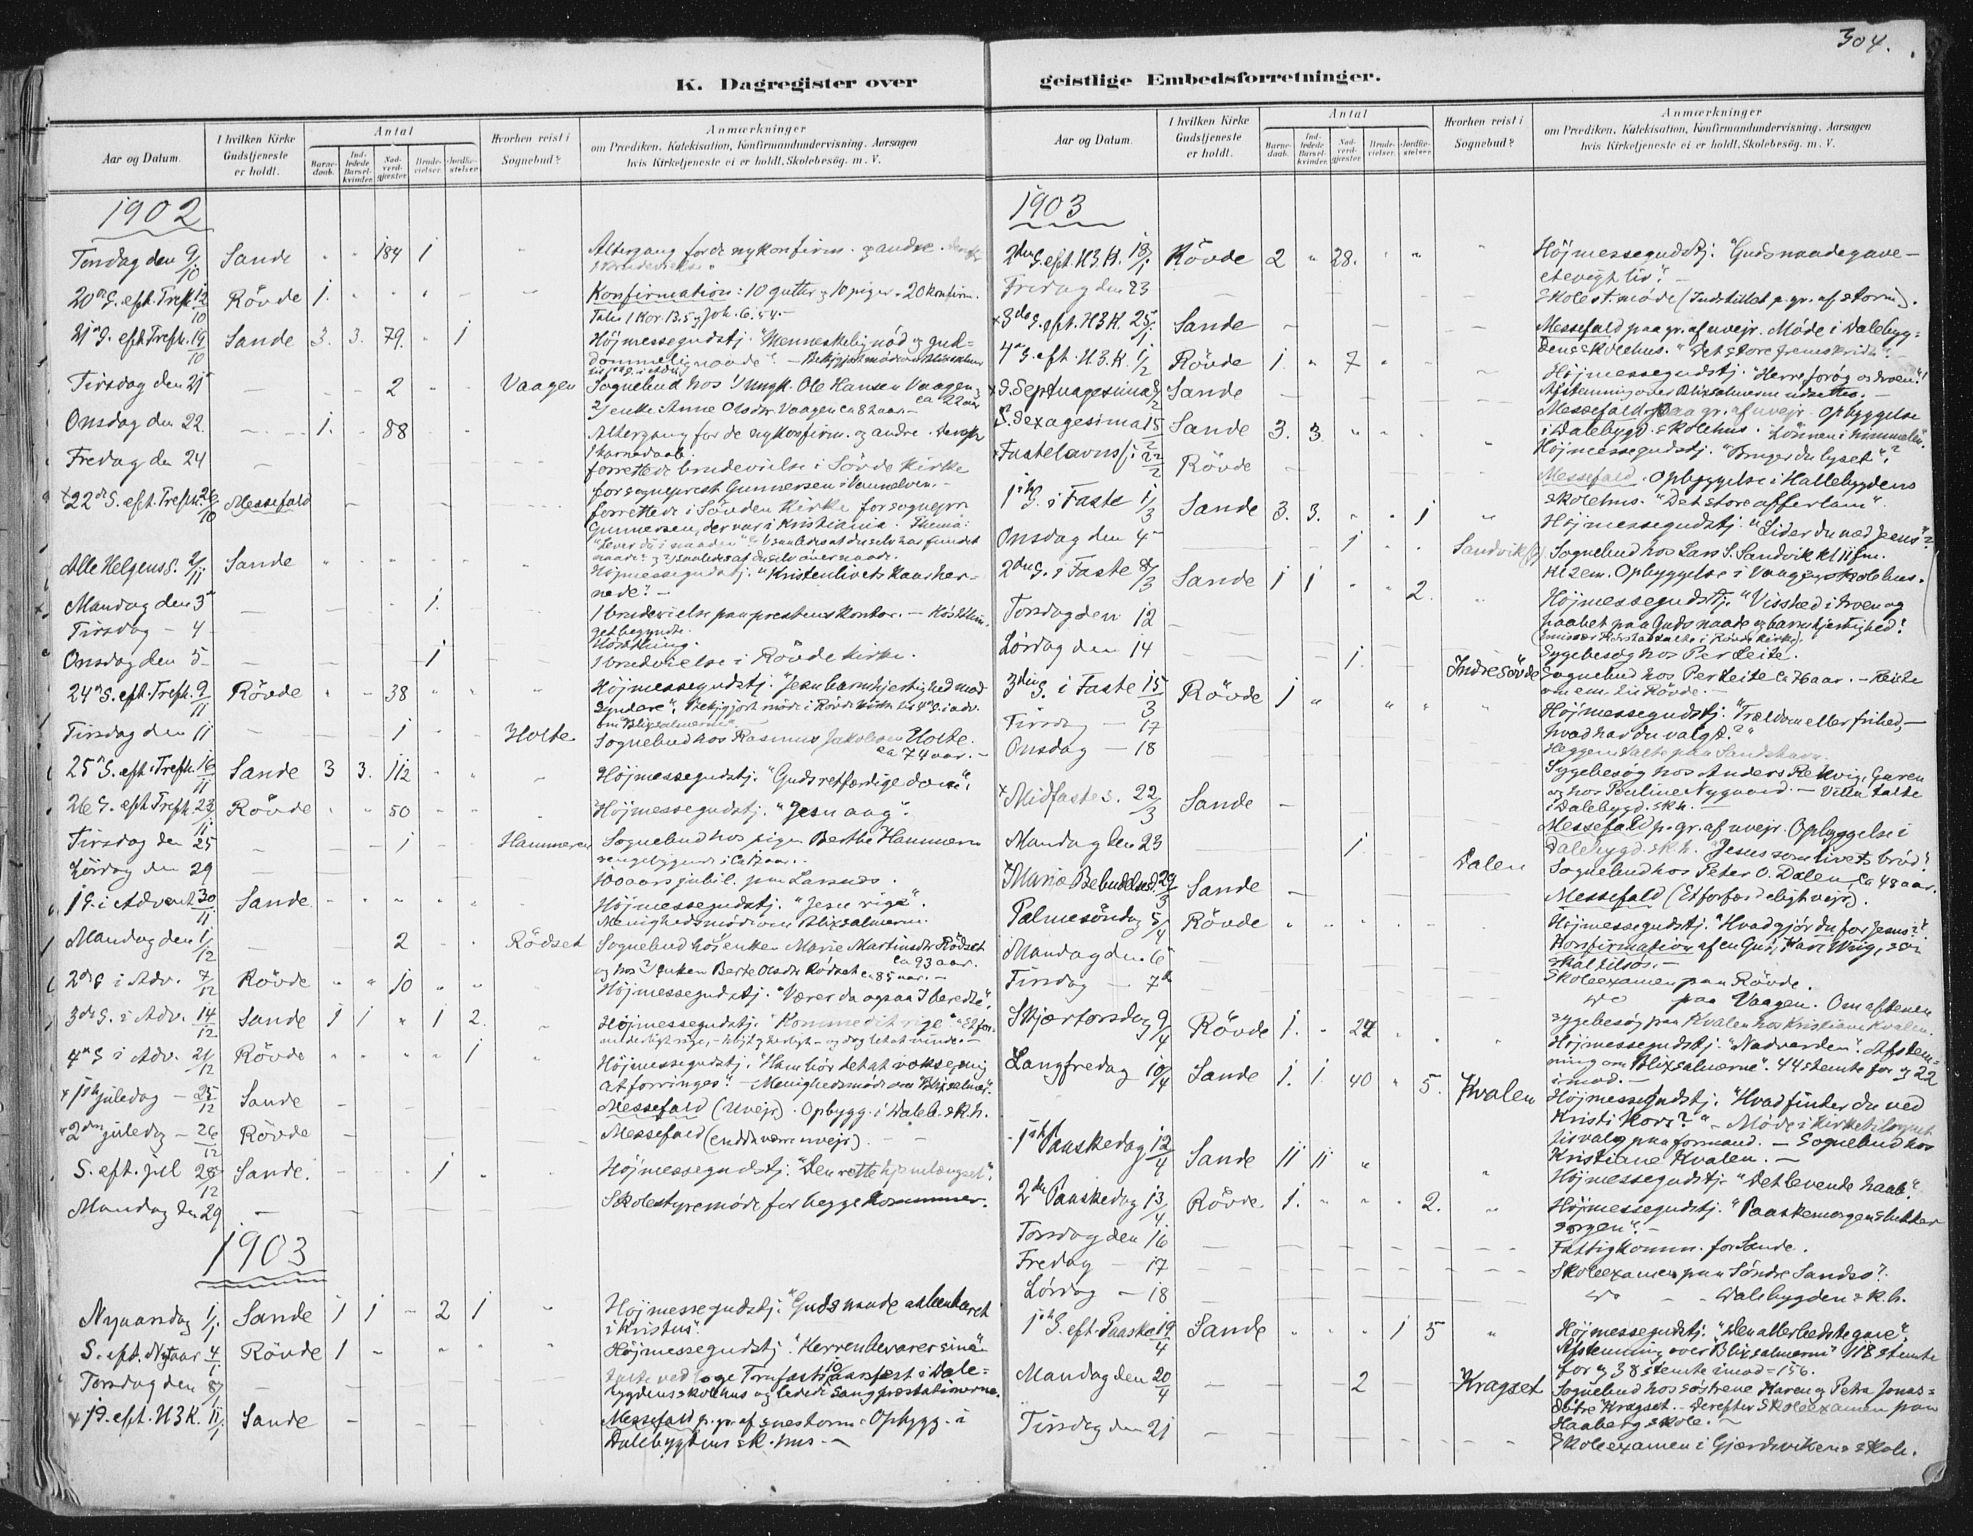 304.
K. Dagregister over geistlige Embedsforretninger.
Aar og Datum.
I hvilken Kirke Gudstjeneste er holdt.
Antal
Barnedaab.
Indledede Barselkvinder.
Nadverdgjester
Brudevielser.
Jordfæstelser.
Hvorhen reist i Sognebud?
Anmærkninger
om Prædiken, Katekisation, Konfirmandundervisning, Aarsagen
hvis Kirketjeneste ei er holdt, Skolebesög. m. V.
1902
Torsdag den 9/10 Sande " " 184 1 " Altergang for de nykonfirm. og andre.
20de S. eft. Trefh. 12/10 Røvde 1. " " " " " Konfirmation: 10 gutter og 10 piger = 20 konfirm.
Tale 1 Kor. 13.5 og Joh. 6.54.–
21de S. eft. Trefh. 19/10 Sande 3. 3. 79. " 1 Höjmessegudstj. "Menneskelig nöd og gud=
dommelig naade".
Tirsdag den 21 – – – 2 – – Vaagen Sognebud hos 1) ungk. Ole Hansen Vaagen, ca 22 aar
2) enke Anne Olsdr Vaagen ca 82 aar.–
Onsdag den 22. – 1. – 88 Altergang for de nykonfirm. og andre. Derefter
1 barnedaab.
Fredag den 24 – forrettede brudevielse i Sövde kirke
for sogneprest Gunnersen i Vannelven.–
x 22de S. eft. Trefh. 26/10 Messefald – – – – – forrettede i Sövden Kirke for sognepr.
Gunnersen, der var i Kristiania. Thema:
Alle Helgens S. 2/11 Sande " " " " " " Höjmessegudstj. "Kristenlivets kaar her-
nede".–
Mandag den 3 – – – – 1. – 1 brudevielse paa prestens kontor.–
Tirsdag – 4 –
Onsdag den 5 – – – – 1 – 1 brudevielse i Røvde kirke.
24de S. eft. Trefh. 9/11 Røvde " " 38 " " " Höjmessegudstj. "Jesu barmhjertighed mod
syndere".
Tirsdag den 11 – – – 1 – – Holte Sognebud hos Rasmus Jakobsen Holte.
ca 74 aar.–
25de S. eft. Trefh. 16/11 Sande 3 3. 112 " " " Höjmessegudstj. "Guds retfærdige dom".
26 S. eft. Trefh. 23/11 Røvde " " 50 " " " Höjmessegudstj. "Jesu aag".
Tirsdag den 25 – – – 1 – – Hammeren Sognebud hos pigen Berthe Hammeren
Lördag den 29 – – – – – 100 aars jubil. paa Larsnes.
1 S. i Advent 30/11 Sande. " " " " " " Höjmessegudstj. "Jesu rige".
Menighedsmöde om Blixsalmerne.
Mandag den 1/12 – – – 2 – – Rödset Sognebud hos 1) enken Marie Martinsdr Rödset
ca 93 aar.
og hos 2) enken Berte Olsdr Rödset ca 85 aar.–
2de S i Adv. 7/12 Røvde " " 10 " " Höjmessegudstj. "Værer da ogsaa I beredte".
3de S. i Adv. 14/12 Sande 1 1 " 1 2. " Höjmessegudstj. "Komme dit rige".
4de S i Adv. 21/12 Røvde " " " " 1 " Höjmessegudstj. "Ham bör det at vokse, mig
at forringes".– Menighedsmöde om Blixsalmer.
x 1ste juledag – 25/12 Sande – – – – – Messefald (uvejr). Opbygg. i Daleb. sk. h.
x 2den juledag – 26/12 Røvde – – – – – Messefald (endda værre uvejr).
S. eft. jul 28/12 Sande. – – – 1 " Höjmessegudstj. "Den rette hjemlængsel".
Mandag den 29 – – – – – Skolestyremöde for begge kommuner.
1903
Nyaarsdag 1/1 Sande 1 1 – 2 1 " Höjmessegudstj. "Guds naade aabenbaret
i Kristus".
S. eft. Nytaar 4/1 Røvde 1 " – – – – Höjmessegudstj. "Herren bevarer sine"
Torsdag den 8/1 – – – – – bygdens skolehus og ledede Sangpræstationerne.
x 1 S. eft. H3K. 11/1 Sande – – – – – Messefald p. gr. af snestorm. Opbygg. i
Dalebygdens sk. hus.–
Aar og Datum.
I hvilken Kirke Gudstjeneste er holdt.
Antal
Barnedaab.
Indledede Barselkvinder.
Nadverdgjester
Brudevielser.
Jordfæstelser.
Hvorhen reist i Sognebud?
Anmærkninger
om Prædiken, Katekisation, Konfirmandundervisning, Aarsagen
hvis Kirketjeneste ei er holdt, Skolebesög. m. V.
1903
2den S. eft. H3K. 18/1 Røvde 2 " 28. " " " Höjmessegudstj. "Guds naadegave –
et evigt liv".–
Fredag den 23 – – – – – Skolest. möde (Indstillet p. gr. af storm).
x 3die S. eft. H3K. 25/1 Sande – – – – – Messefald paa gr. af uvejr. Möde i Dalebyg-
dens skolehus. "Det store fremskridt".
4de S. eft. H3K. 1/2 Røvde 1. " 7 " " " Höjmessegudstj. "Herre forög os troen"!
Afstemning over Blixsalmerne udsattes.–
x S. Septuagesima 8/2 Sande – – – – – Messefald paa gr. af uvejr. Opbyggelse
i Dalebygd. skolehus.
S. Sexagesima 15/2 Sande 3. 3. " " " Höjmessegudstj. "Bruger du lyset"?
x Fastelavns s. 22/2 Røvde – – – – Messefald. Opbyggelse i Hallebygdens
skolehus. "Det store offerlam".
1ste S. i Faste 1/3 Sande 3. 3. " " 1 " Höjmessegudstj. "Lider du med Jesus"?
Onsdag den 4 – – – 1 – – Sandvik Sognebud hos Lars S. Sandvik kl 11 fm.
Kl 2 em. Opbyggelse i Vaagen skolehus.
2den S. i Faste 8/3 Sande 1 1 " " 2. " Höjmessegudstj. "Visshed i troen og
haabet paa Guds naade og barmhjertighed!
Torsdag den 12 – – – – – Sygebesög hos Per Leite.
Lördag den 14 – – – 1. – – Indre Sövde Sognebud hos Per Leite ca 76 aar.– Reiste
om em. til Røvde.–
3die S. i Faste 15/3 Røvde 1 " " " " Höjmessegudstj. "Trældom eller frihed,–
hvad har du valgt?"
Tirsdag – 17
Onsdag – 18 Sygebesög hos Anders Rekvig, Guren
og hos Pauline Nygaard.–
i Dalebygd. sk. h.
x Midfaste s. 22/3 Sande – – – – – Messefald p. gr. af uvejr. Opbyggelse i
Dalebygd. sk. h. "Jesus som livets bröd".
Mandag den 23 – – – 1 – – Dalen Sognebud hos Peter O. Dalen, ca 48 aar.
x Mariæ Bebudelsed. 29/3 Sande – – – – – Messefald (Et forfærdeligt vejr).
Palmesöndag 5/4 Røvde " " " " " " Höjmessegudstj. "Hvad gjör du for Jesus"?
skal tilsös.–
Mandag den 6 – – – – – Skoleexamen paa Røvde.
Tirsdag – 7de – – – – – do paa Vaagen. Om aftenen
sygebesög paa Kvalen hos Kristiane Kvalen.
Skjærtorsdag 9/4 Røvde 1. " 24 " " " Höjmessegudstj. "Nadverden". Afstem-
ning om Blixsalmerne". 44 stemte for og 22
imod.–
Langfredag 10/4 Sande 1. 1 40 " 5. Kvalen Höjmessegudstj. "Hvad finder du ved
Kristi Kors?" – Möde i kirken
valg paa formand.– Sognebud hos
Kristiane Kvalen.–
1ste Paaskedag 12/4 Sande 11 11 " " Höjmessegudstj. "Det levende haab".
2den Paaskedag 13/4 Røvde 1. " " " 2. " Höjmessegudstj. "Paaskemorgen slukker
sorgen".–
Torsdag den 16 – – – – – Fattigkomm. for Sande.
Fredag – 17 – – – – – Skoleexamen paa Söndre Sandsö.
Lördag – 18 – – – – – do – Dalebygden sk. h.
1ste S. eft. Paaske 19/4 Sande " " " 1 5 " Höjmessegudstj. "Den allerbedste gave".
Afstemning over Blixsalmerne 118 stemte
for og 38 stemte imod = 156.
Mandag den 20/4 – – – 2 – – Kragset Sognebud hos söstrene Karen og Petra Jonas=
dötre Kragset.– Derefter Skoleexamen paa
Haaberg skole.–
Tirsdag den 21 – – – – – Skoleexamen i Gjærdsvikens skole.